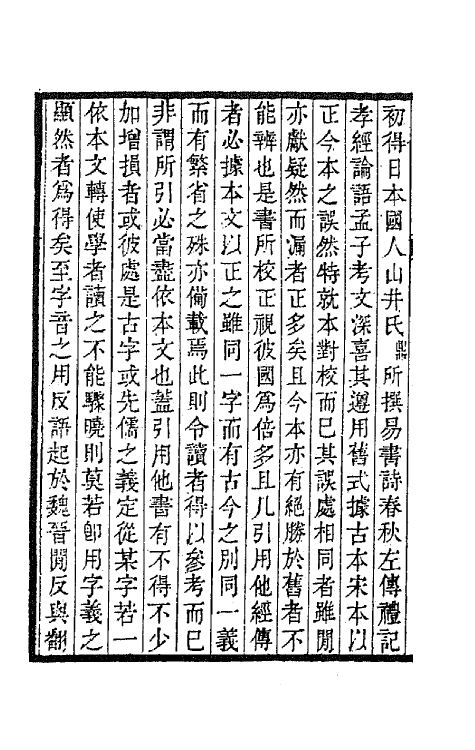 初得日本國人山井氏鼎所撰易書詩春秋左傳禮記
孝經論語孟子考文深喜其遵用舊式據古本宋本以
正今本之誤然特就本對校而已其誤處相同者雖閒
亦獻疑然而漏者正多矣且今本亦有絕勝於舊者不
能辨也是書所校正視彼國爲倍多且凡引用他經傳
者必據本文以正之雖同一字而有古今之別同一義
而有繁省之殊亦備載焉此則令讀者得以參考而已
非謂所引必當盡依本文也蓋引用他書有不得不少
加增損者或彼處是古字或先儒之義定從某字若一
依本文轉使學者讀之不能驟曉則莫若卽用字義之
顯然者爲得矣至字音之用反語起於魏晉閒反與翻